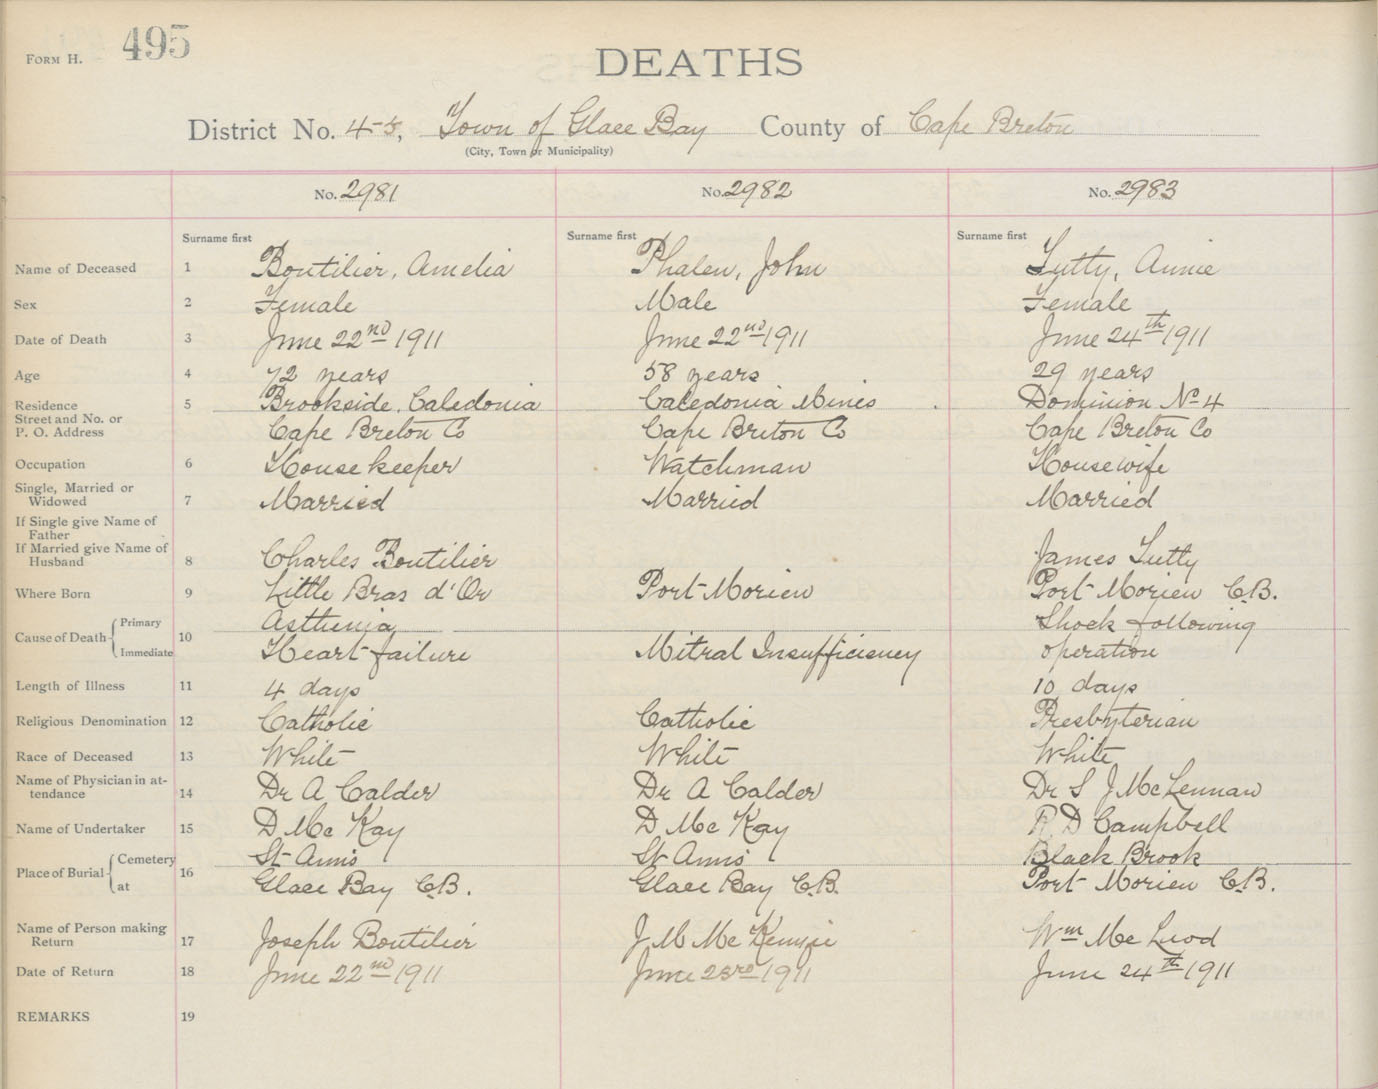 495
FORM H.
DEATHS
District No. 4-5, Town of Glace Bay County of Cape Breton
(City, Town or Municipality)
No. 2981 No. 2982 No. 2983
Surname first Surname first Surname first
Name of Deceased 1 Boutilier, Amelia Phalen, John Tutty, Annie
Sex 2 Female Male Female
Date of Death 3 June 22nd 1911 June 22nd 1911 June 24th 1911
Age 4 72 years 58 years 29 years
Residence 5 Brookside, Caledonia Caledonia Mines Dominion No 4
Street and No. or
P. O. Address Cape Breton Co Cape Breton Co Cape Breton Co
Occupation 6 Housekeeper Watchman Housewife
Single, Married or
Widowed 7 Married Married Married
If Single give Name of
Father
If Married give Name of
Husband 8 Charles Boutilier James Tutty
Where Born 9 Little Bras d'Or Port Morien Port Morien C.B.
Primary Asthenia Shock following
Cause of Death 10
Immediate Heart failure Mitral Insufficiency operation
Length of Illness 11 4 days 10 days
Religious Denomination 12 Catholic Catholic Presbyterian
Race of Deceased 13 White White White
Name of Physician in at-
tendance 14 Dr A Calder Dr A Calder Dr S J McLennan
Name of Undertaker 15 D McKay D McKay R D Campbell
Cemetery St Anns St Anns Black Brook
Place of Burial 16
at Glace Bay C.B. Glace Bay C.B. Port Morien C.B.
Name of Person making
Return 17 Joseph Boutilier J M McKenzie Wm McLeod
Date of Return 18 June 22nd 1911 June 23rd 1911 June 24th 1911
REMARKS 19